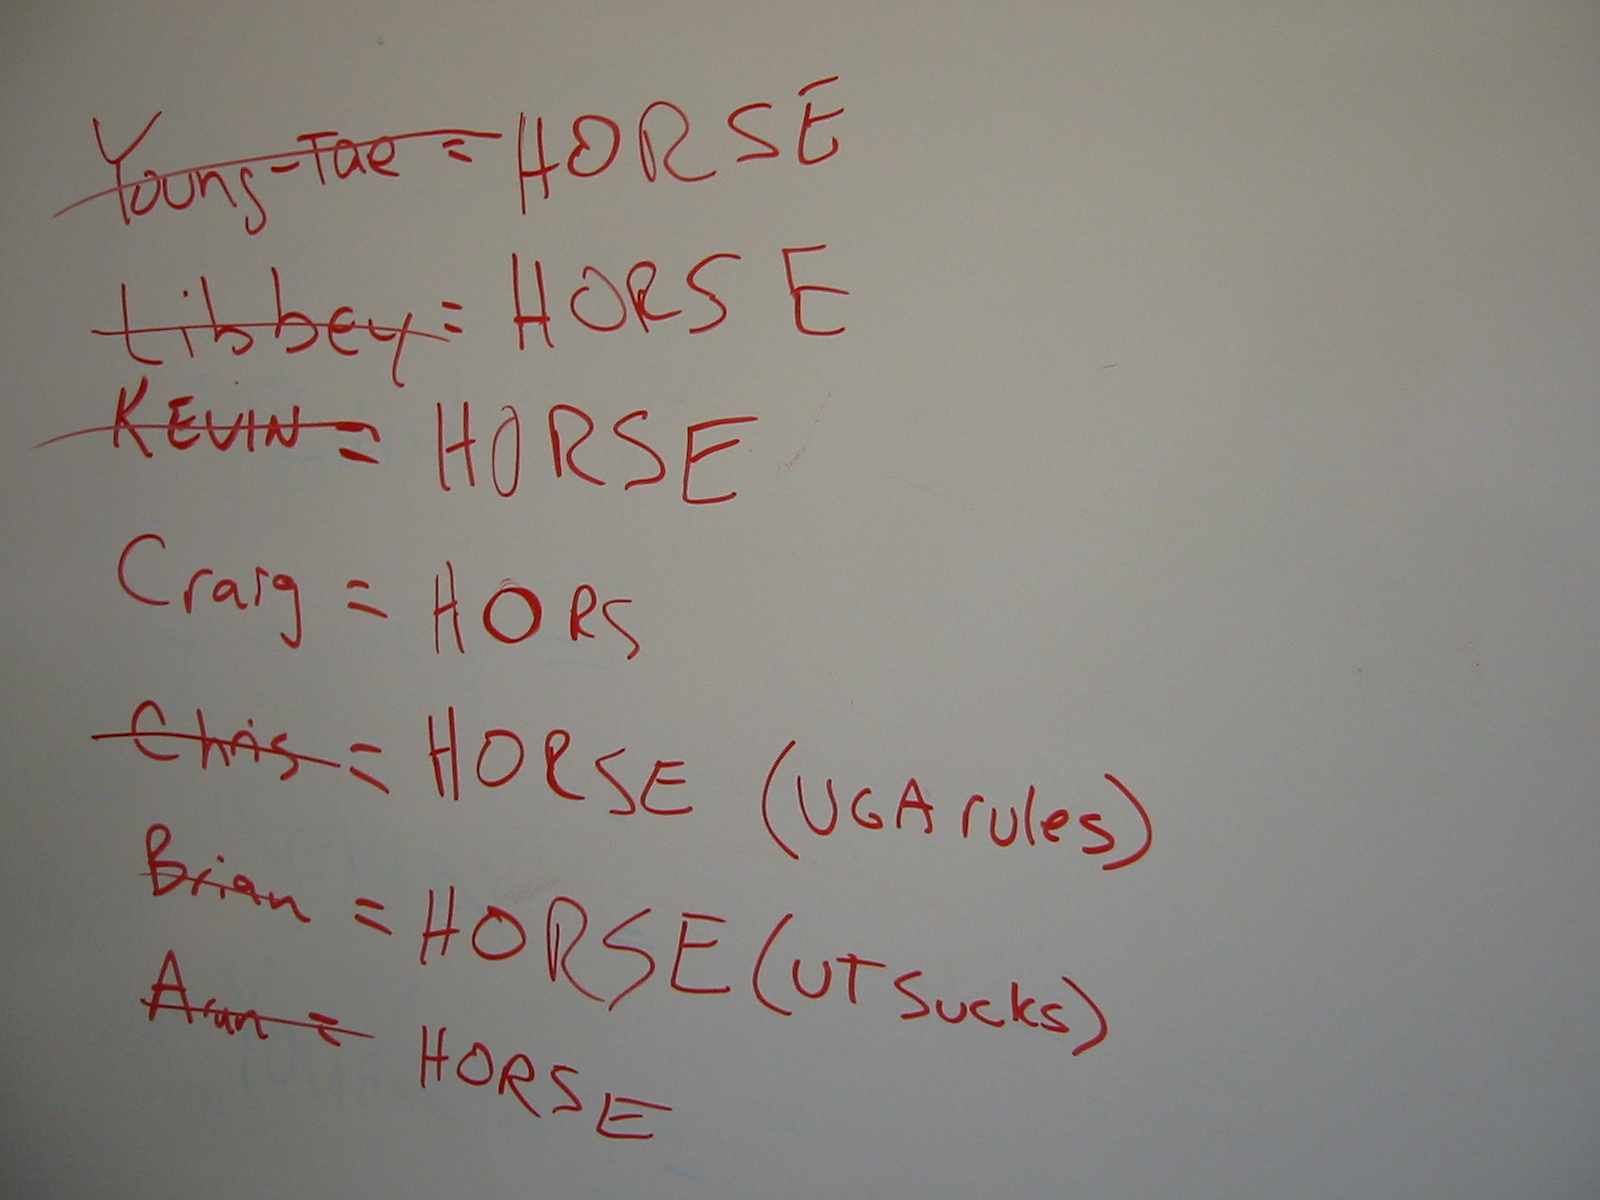 Young-Tae = HORSE
Libbey = HORSE
KEVIN = HORSE
Craig = HORS
Chris = HORSE (UGA rules)
Brian = HORSE (UT Sucks)
Arun = HORSE